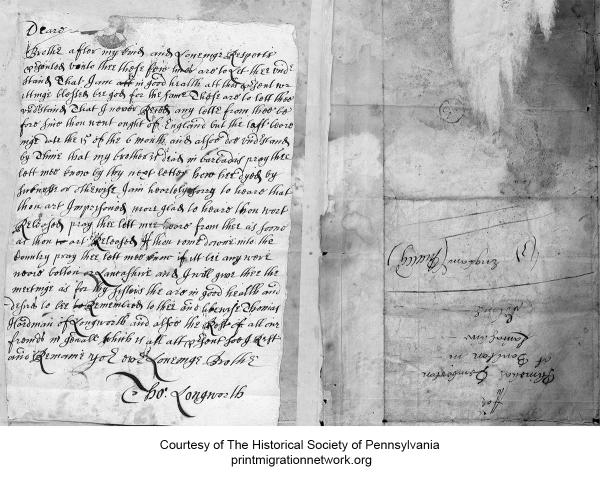 Deare
Brothe after my kind and Loveinge Respects
presented unto thee these few lines are to Let thee unde
stand That I am att in good health att this present wr
ittinge blessed bee god for the same These are to lett thee
understand That I never Reced any lette from thee be
fore sine thou went ought of England but the last beare
inge date the of the 6 month and alsoe doe undstand
by Thine that my brother is dead in barbados pray thee
lett mee know by thy next letter how hee dyed by
sickness or othewise, I am heartely sorry to heare that
thou art Imprisoned more glad to heare thou wort
Released pray thee lett mee heare from thee as soone
as thou art Released If thou come downe into the
Country pray thee lett mee know if itt bee any were
neere bolton or Lancashire and I will give thee the
meetinge as for thy sistors the are in good health and
desire to bee Remembred to thee and likewise Thomas
Hordman of Longworth and alsoe the Rest of all our
friends in genall which is all att present soe I Rest
and Remaine yor ever Loveinge Brothe
Tho: Longworth
England
For
att
Boulton in
Lancashire
Courtesy of The Historical Society of Pennsylvania
printmigrationnetwork.org